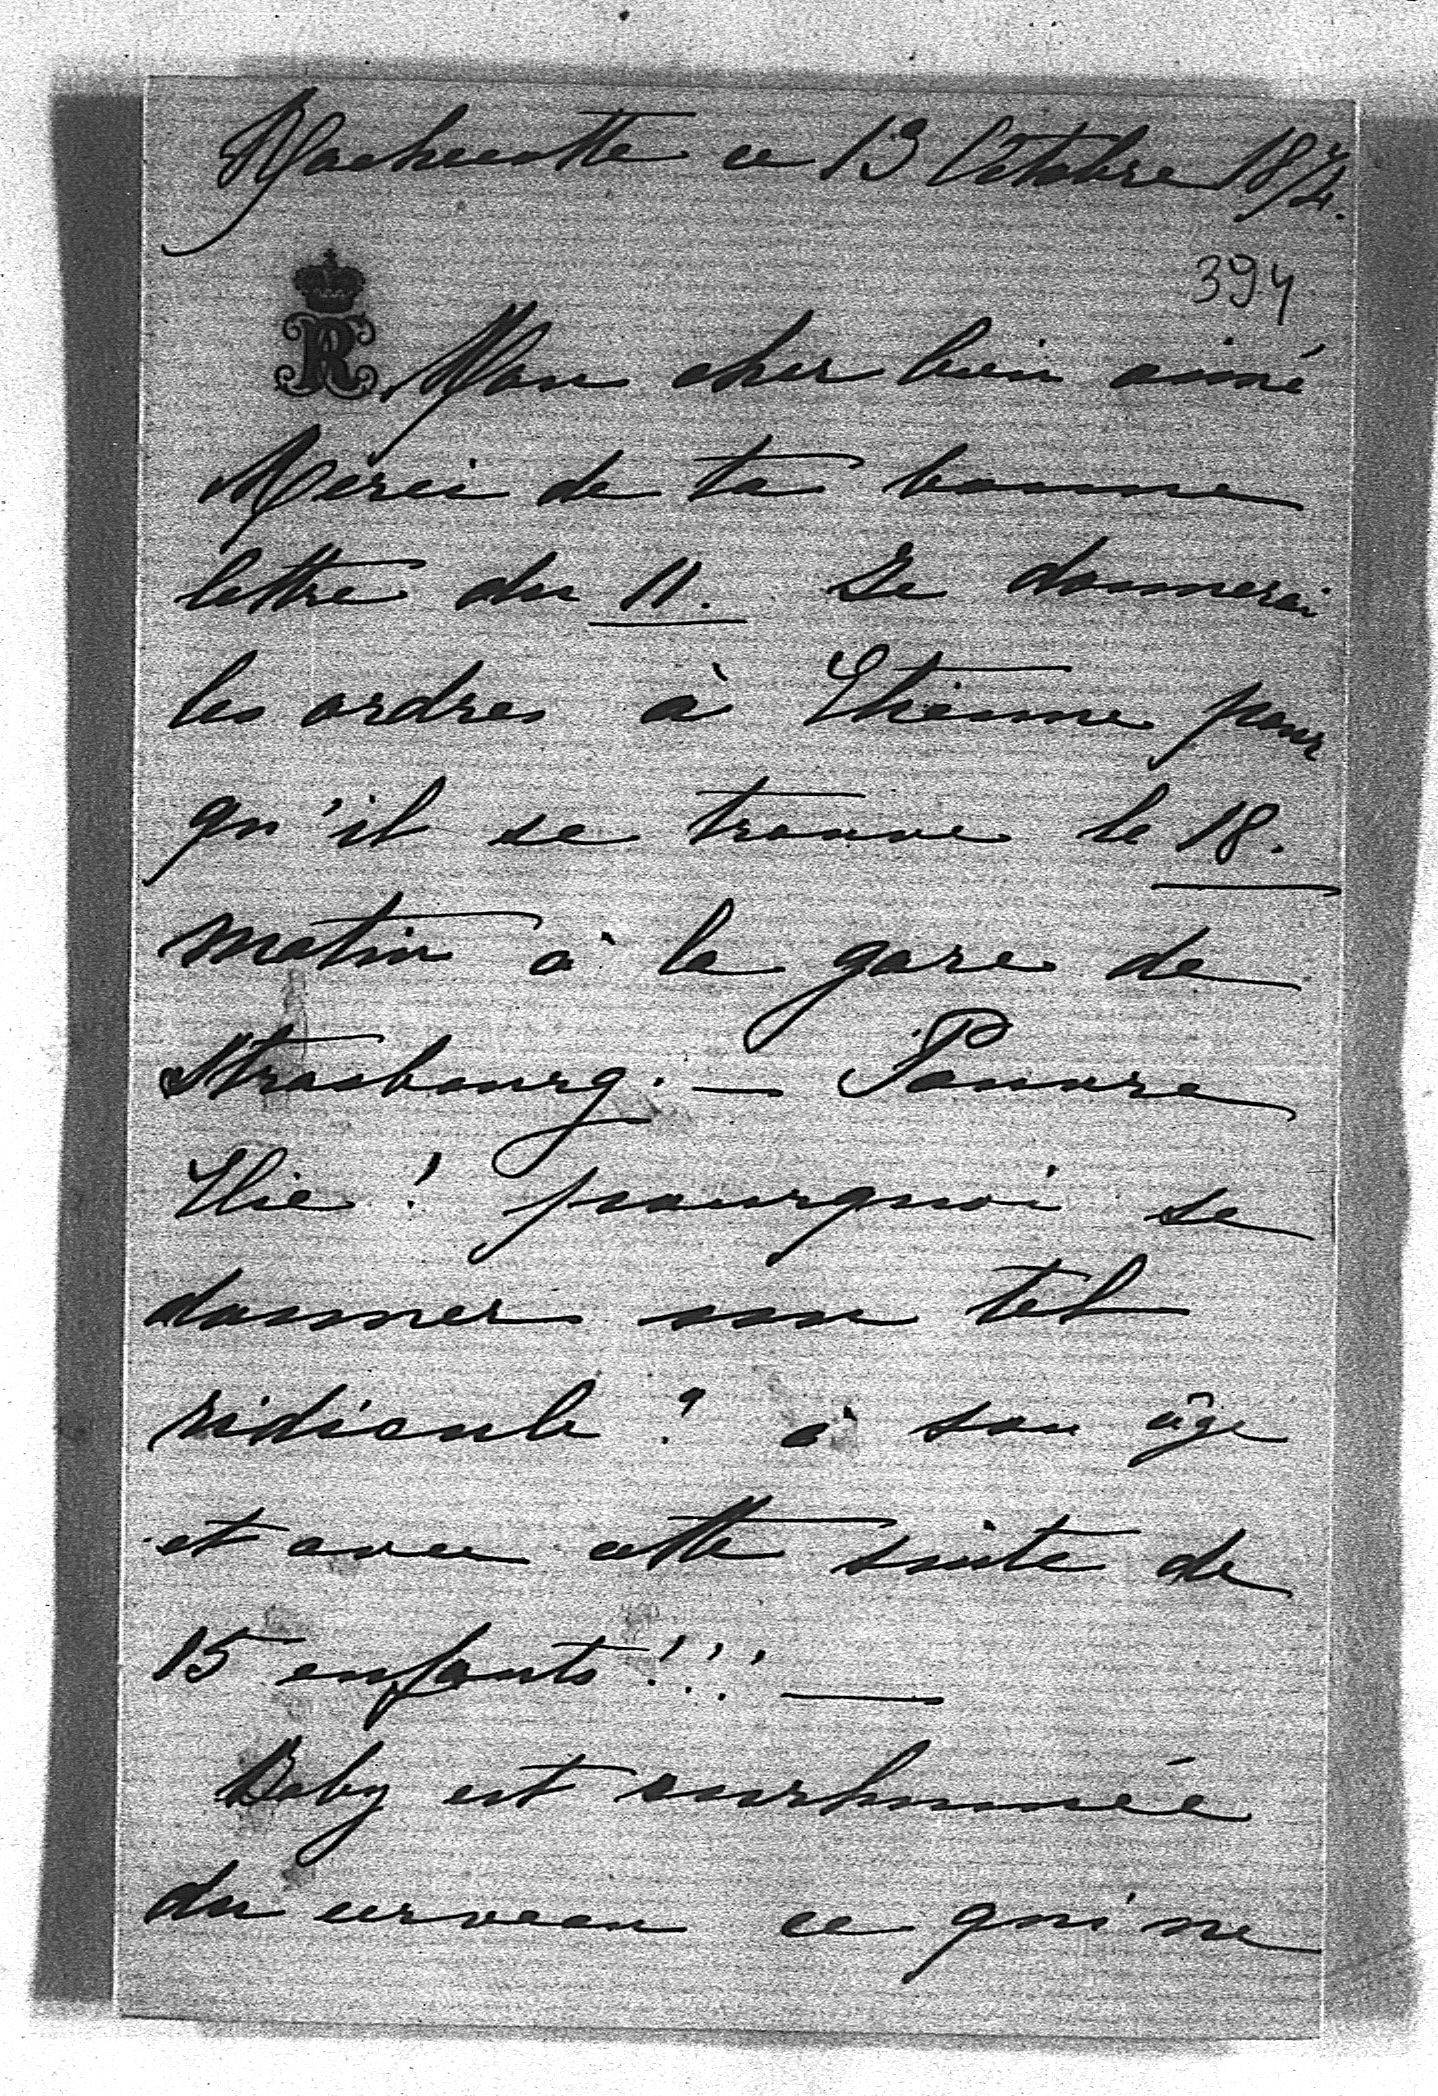 Rochecotte ce 13 Octobre 1874.
394
R
Mon cher bien aimé
Merci de ta bonne
lettre du 11. Je donnerai
les ordres à Etienne pour
qu'il se trouve le 18.
matin à la gare de
Strasbourg. — Pauvre
Elie ! pourquoi se
donner un tel
ridicule ? à son âge
et avec cette suite de
15 enfants !!! —
Baby est enrhumée
du cerveau ce qui ne